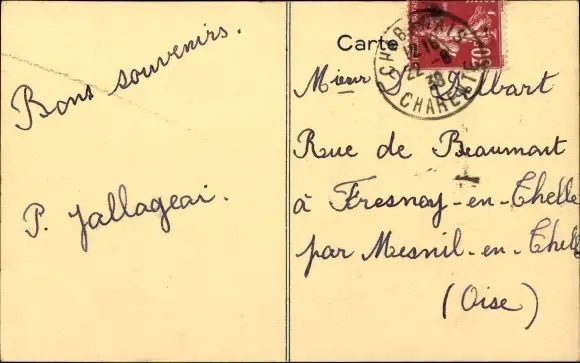 Bons souvenirs.
P. Jallageai.
Carte
CHABANAIS
12 15
22 -8
38
CHARENTE
Mieur D. Delbart
Rue de Beaumont
à Fresnoy-en-Thelle
par Mesnil-en-Thell
(Oise)